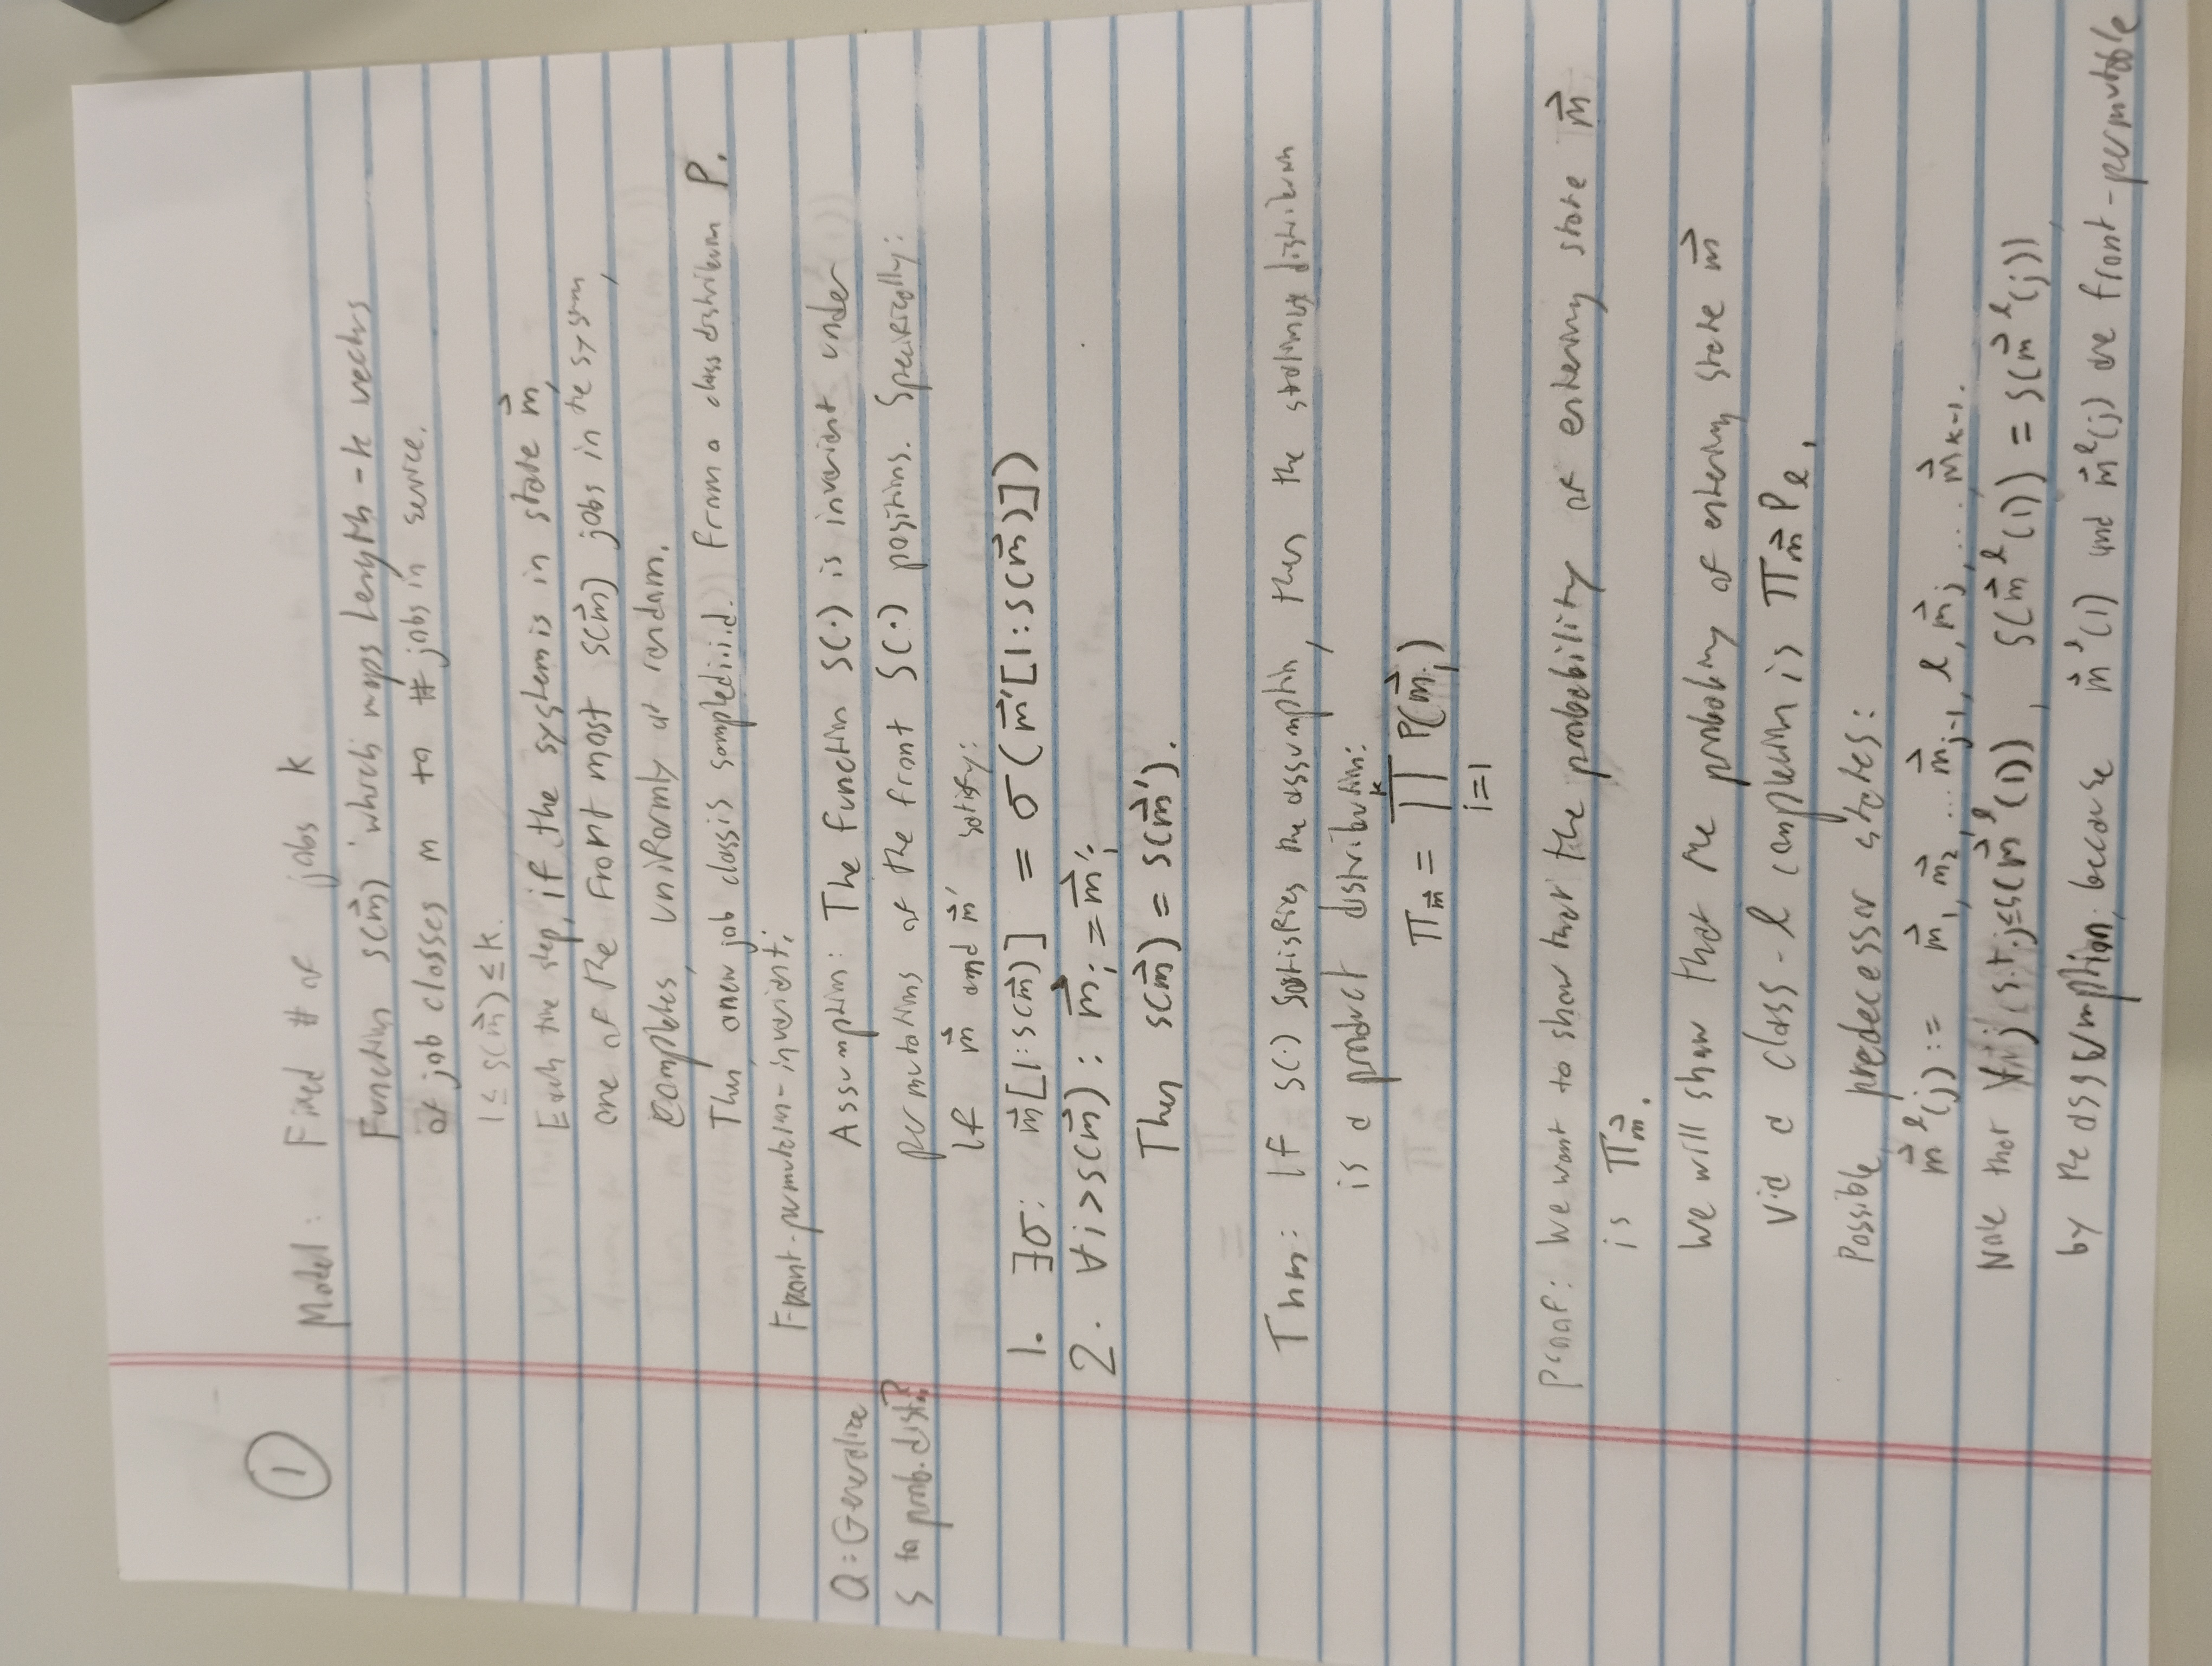 ①
Model: Fixed # of jobs k
Function s(m⃗) which maps length-k vectors
of job classes m to # jobs in service.
1 ≤ s(m⃗) ≤ k.
Each time step, if the system is in state m⃗,
one of the front most s(m⃗) jobs in the system,
completes, uniformly at random.
Then a new job class is sampled i.i.d. from a class distribution P.
Front-permutation-invariant:
Q: Generalize
s to prob. dist.?
Assumption: The function s(·) is invariant under
permutations of the front s(·) positions. Specifically:
If m⃗ and m⃗' satisfy:
1. ∃σ: m⃗[1:s(m⃗)] = σ(m⃗'[1:s(m⃗)])
2. ∀i>s(m⃗): m⃗_i = m⃗'_i
Then s(m⃗) = s(m⃗').
Thm: If s(·) satisfies the assumption, then the stationary distribution
is a product distribution:
π_m⃗ = ∏_{i=1}^{k} P(m⃗_i)
Proof: We want to show that the probability of entering state m⃗
is π_m⃗.
We will show that the probability of entering state m⃗
via a class-ℓ completion is π_m⃗ P_ℓ.
Possible predecessor states:
m⃗^ℓ(j) := m⃗_1, m⃗_2, ... m⃗_{j-1}, ℓ, m⃗_j, ..., m⃗_{k-1}.
Note that ∀ j s.t. j≤s(m⃗^ℓ(1)), s(m⃗^ℓ(1)) = s(m⃗^ℓ(j)),
by the assumption, because m⃗^ℓ(1) and m⃗^ℓ(j) are front-permutable